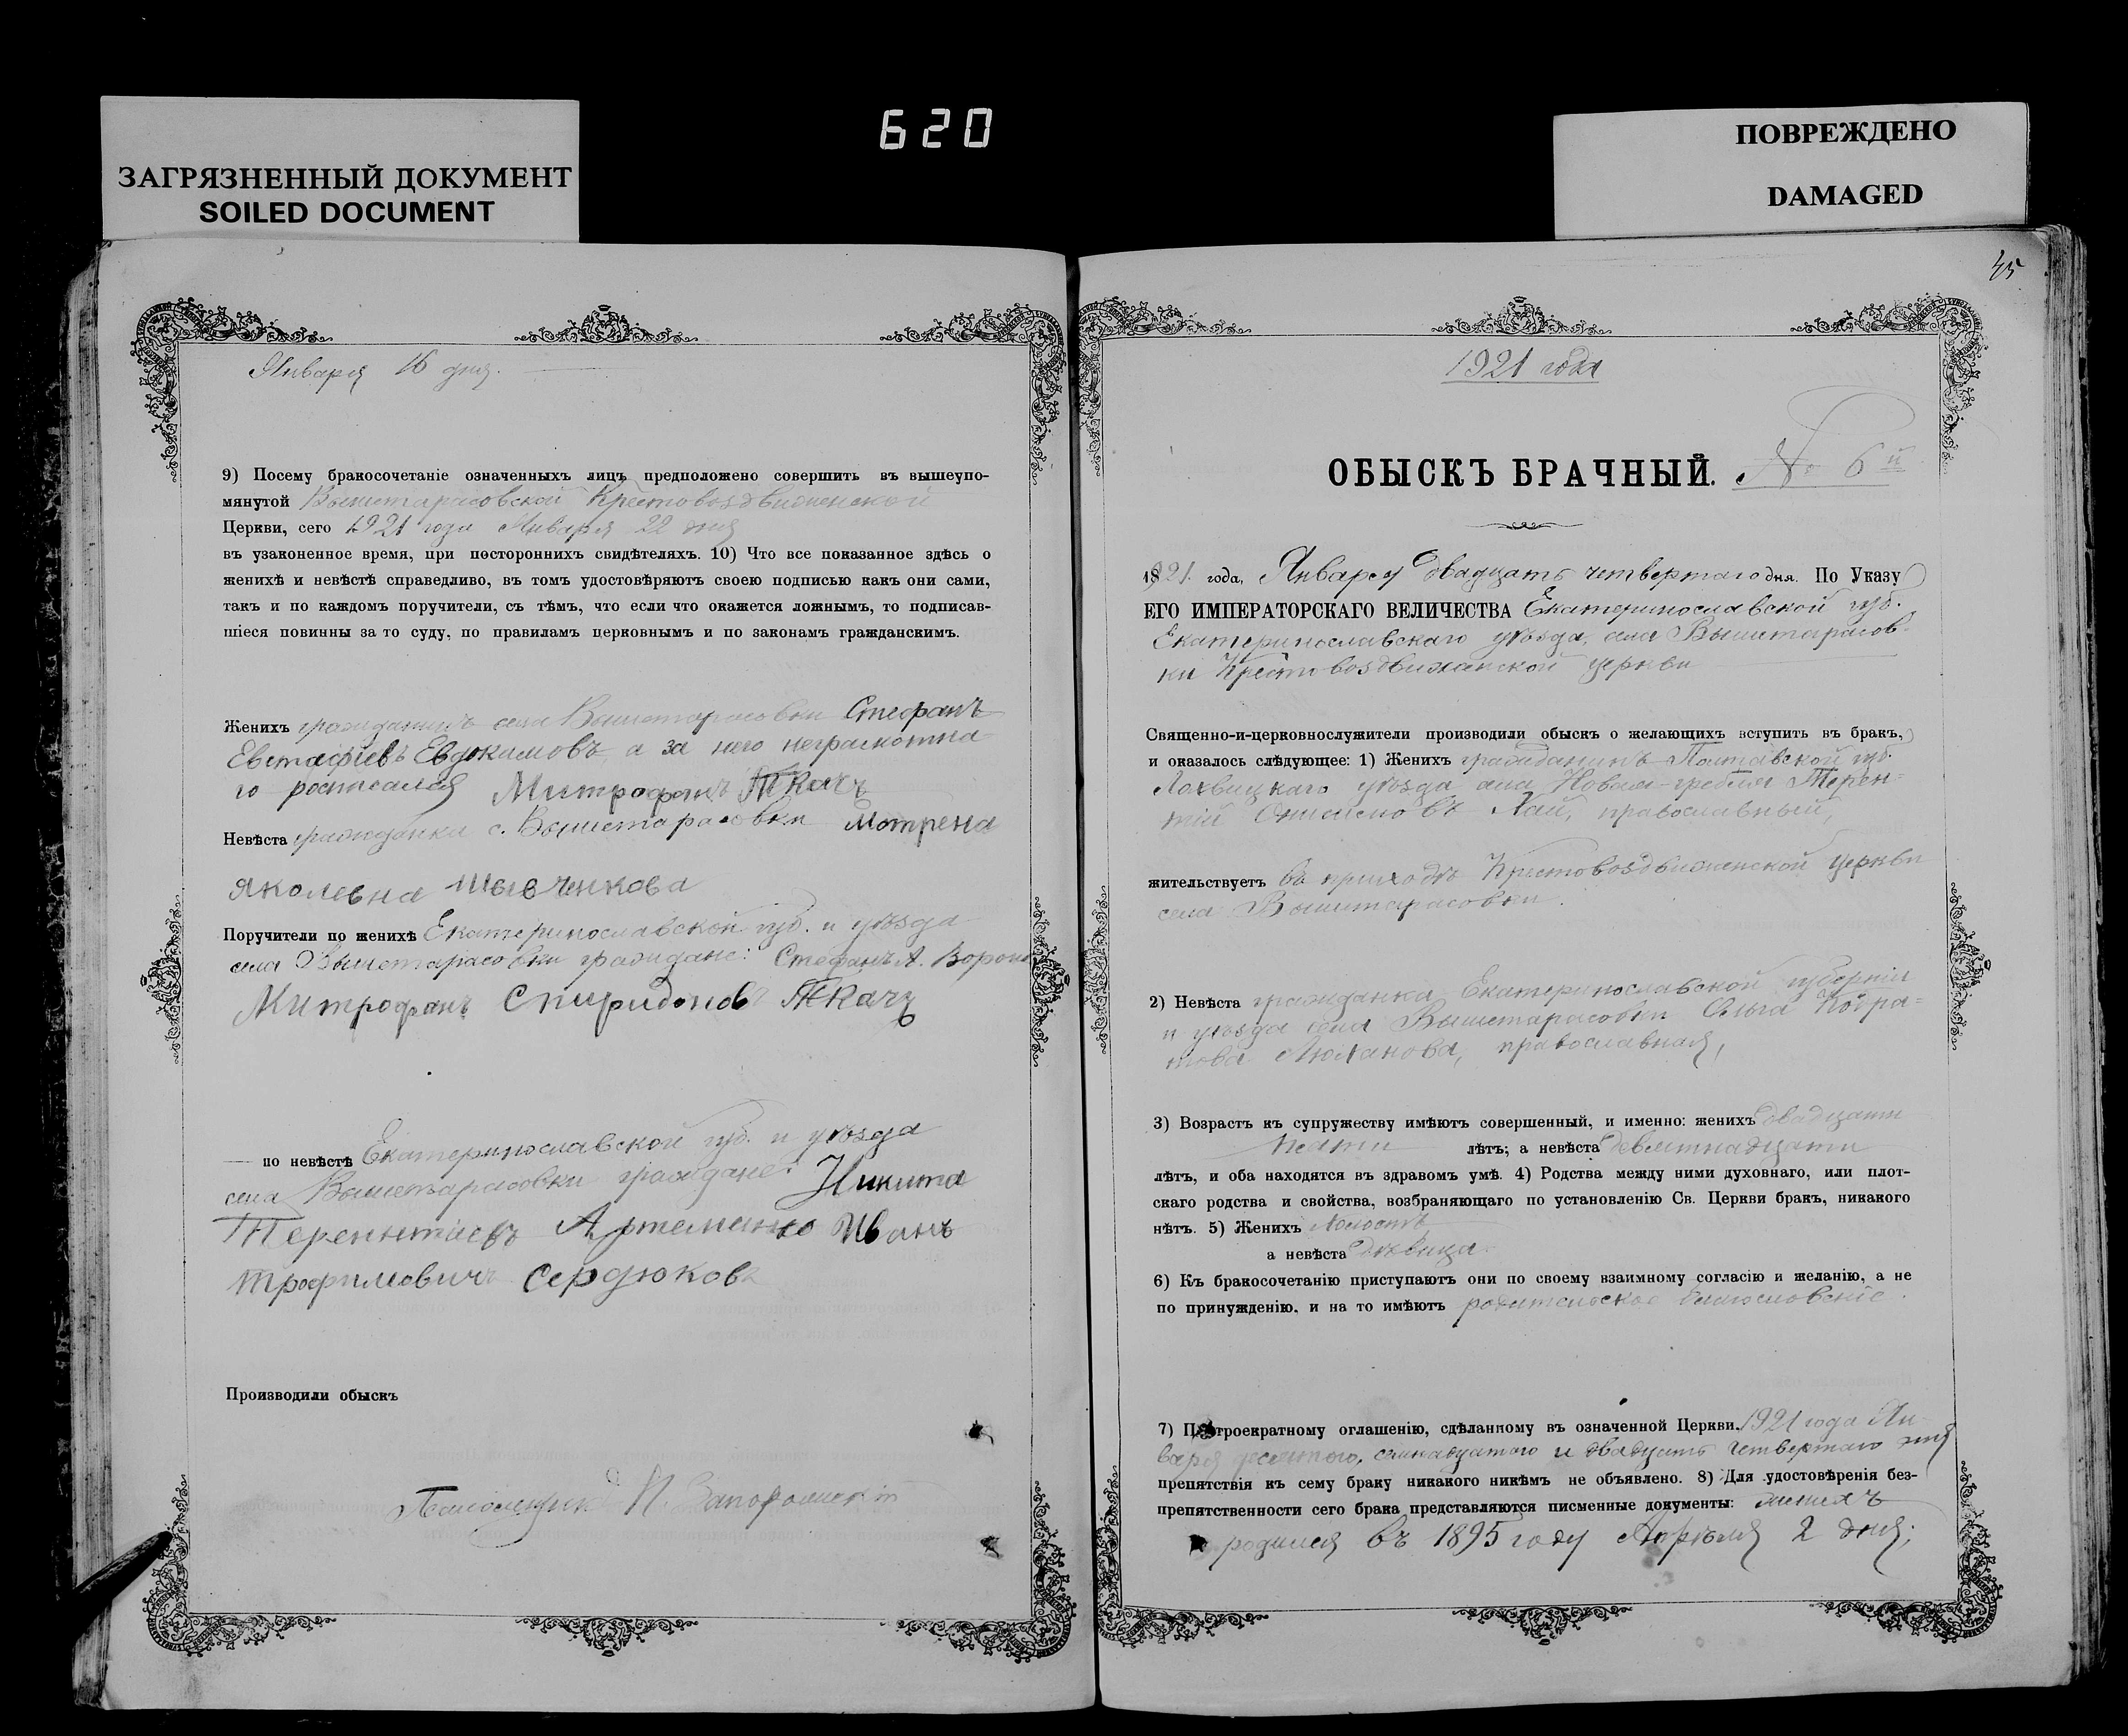 620
ЗАГРЯЗНЕННЫЙ ДОКУМЕНТ
SOILED DOCUMENT
ПОВРЕЖДЕНО
DAMAGED
Января 16 дня.
9) Посему бракосочетаніе означенныхъ лицъ предположено совершить въ вышеупо-
мянутой Вышетарасовской Крестовоздвиженской
Церкви, сего 1921 года Января 22 дня
въ узаконенное время, при постороннихъ свидѣтеляхъ. 10) Что все показанное здѣсь о
женихѣ и невѣстѣ справедливо, въ томъ удостовѣряютъ своею подписью какъ они сами,
такъ и по каждомъ поручители, съ тѣмъ, что если что окажется ложнымъ, то подписав-
шіеся повинны за то суду, по правиламъ церковнымъ и по законамъ гражданскимъ.
Женихъ гражданинъ села Вышетарасовки Стефанъ
Евстафіевъ Евдокимовъ, а за него неграмотна-
го росписался Митрофанъ Ткачъ
Невѣста гражданка с. Вышетарасовки Мотрена
Яколевна Шывченкова
Поручители по женихѣ Екатеринославской губ. и уѣзда
села Вышетарасовки граждане: Стефанъ А.
Митрофанъ Спиридоновъ Ткачъ
по невѣстѣ Екатеринославской губ. и уѣзда
села Вышетарасовки граждане: Никита
Терентіевъ Артеменко Иванъ
Трофимовичъ Сердюковъ
Производили обыскъ
45
1921 года
ОБЫСКЪ БРАЧНЫЙ. № 6й
1921. года, Января двадцать четвертаго дня. По Указу
ЕГО ИМПЕРАТОРСКАГО ВЕЛИЧЕСТВА Екатеринославской губ.
Екатеринославскаго уѣзда, села Вышетарасов-
ки Крестовоздвиженской церкви
Священно-и-церковнослужители производили обыскъ о желающихъ вступить въ бракъ,
и оказалось слѣдующее: 1) Женихъ гражданинъ Полтавской губ.
Лохвицкаго уѣзда села Новая-гребля Терен-
тій Онисимовъ Лай, православный,
жительствуетъ въ приходѣ Крестовоздвиженской церкви
села Вышетарасовки.
2) Невѣста гражданка Екатеринославской губерніи
и уѣзда села Вышетарасовки Ольга
православная,
3) Возрастъ къ супружеству имѣютъ совершенный, и именно: женихъ двадцати
пяти лѣтъ; а невѣста девятнадцати
лѣтъ, и оба находятся въ здравомъ умѣ. 4) Родства между ними духовнаго, или плот-
скаго родства и свойства, возбраняющаго по установленію Св. Церкви бракъ, никакого
нѣтъ. 5) Женихъ холостъ
а невѣста дѣвица.
6) Къ бракосочетанію приступаютъ они по своему взаимному согласію и желанію, а не
по принужденію, и на то имѣютъ родительское благословеніе.
7) По троекратному оглашенію, сдѣланному въ означенной Церкви, 1921 года Ян-
варя десятого, семнадцатаго и двадцать четвертаго дня
препятствія къ сему браку никакого никѣмъ не объявлено. 8) Для удостовѣренія без-
препятственности сего брака представляются писменные документы: женихъ
родился въ 1895 году Апрѣля 2 дня;